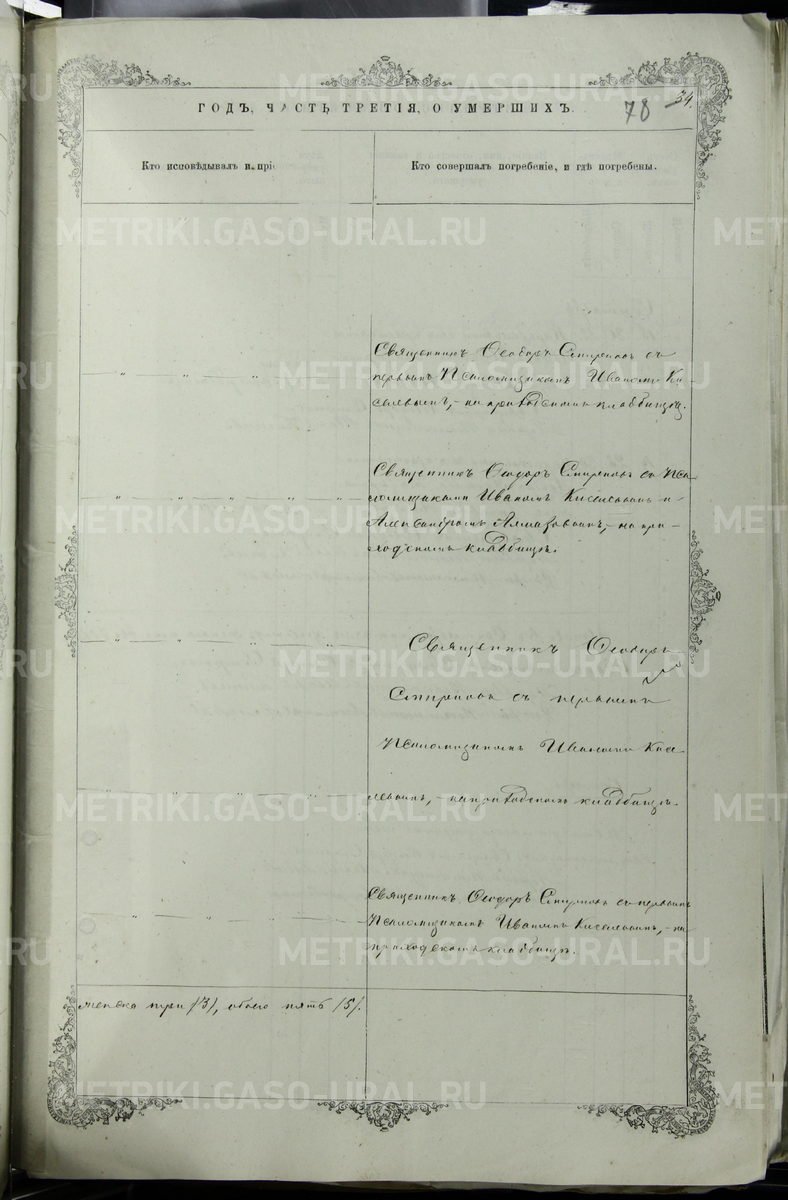 34.
78
ГОДЪ, ЧАСТЬ ТРЕТІЯ, О УМЕРШИХЪ.
Кто исповѣдывалъ и прі
Кто совершалъ погребеніе, и гдѣ погребены.
Священникъ Ѳеодоръ Смирновъ съ
первымъ Псаломщикомъ Иваномъ Ки-
селевымъ, - на приходскомъ кладбищѣ.
Священникъ Ѳеодоръ Смирновъ съ Пса-
ломщиками Иваномъ Киселевымъ и
Александромъ Алмазовымъ, - на при-
ходскомъ кладбищѣ.
Священникъ Ѳеодоръ
Смирновъ съ первымъ
Псаломщикомъ Иваномъ Кисе-
левымъ, - на приходскомъ кладбищѣ.
Священникъ Ѳеодоръ Смирновъ съ первымъ
Псаломщикомъ Иваномъ Киселевымъ, - на
приходскомъ кладбищѣ.
женска три /3/, обоего пять /5/.
METRIKI.GASO-URAL.RU